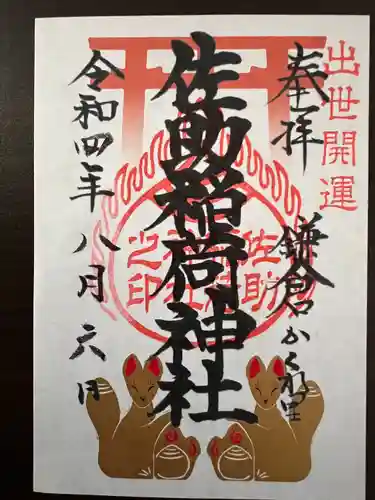 出世開運
奉拝
鎌倉かくれ里
佐助稲荷神社
佐助稲荷神社之印
令和四年八月六日